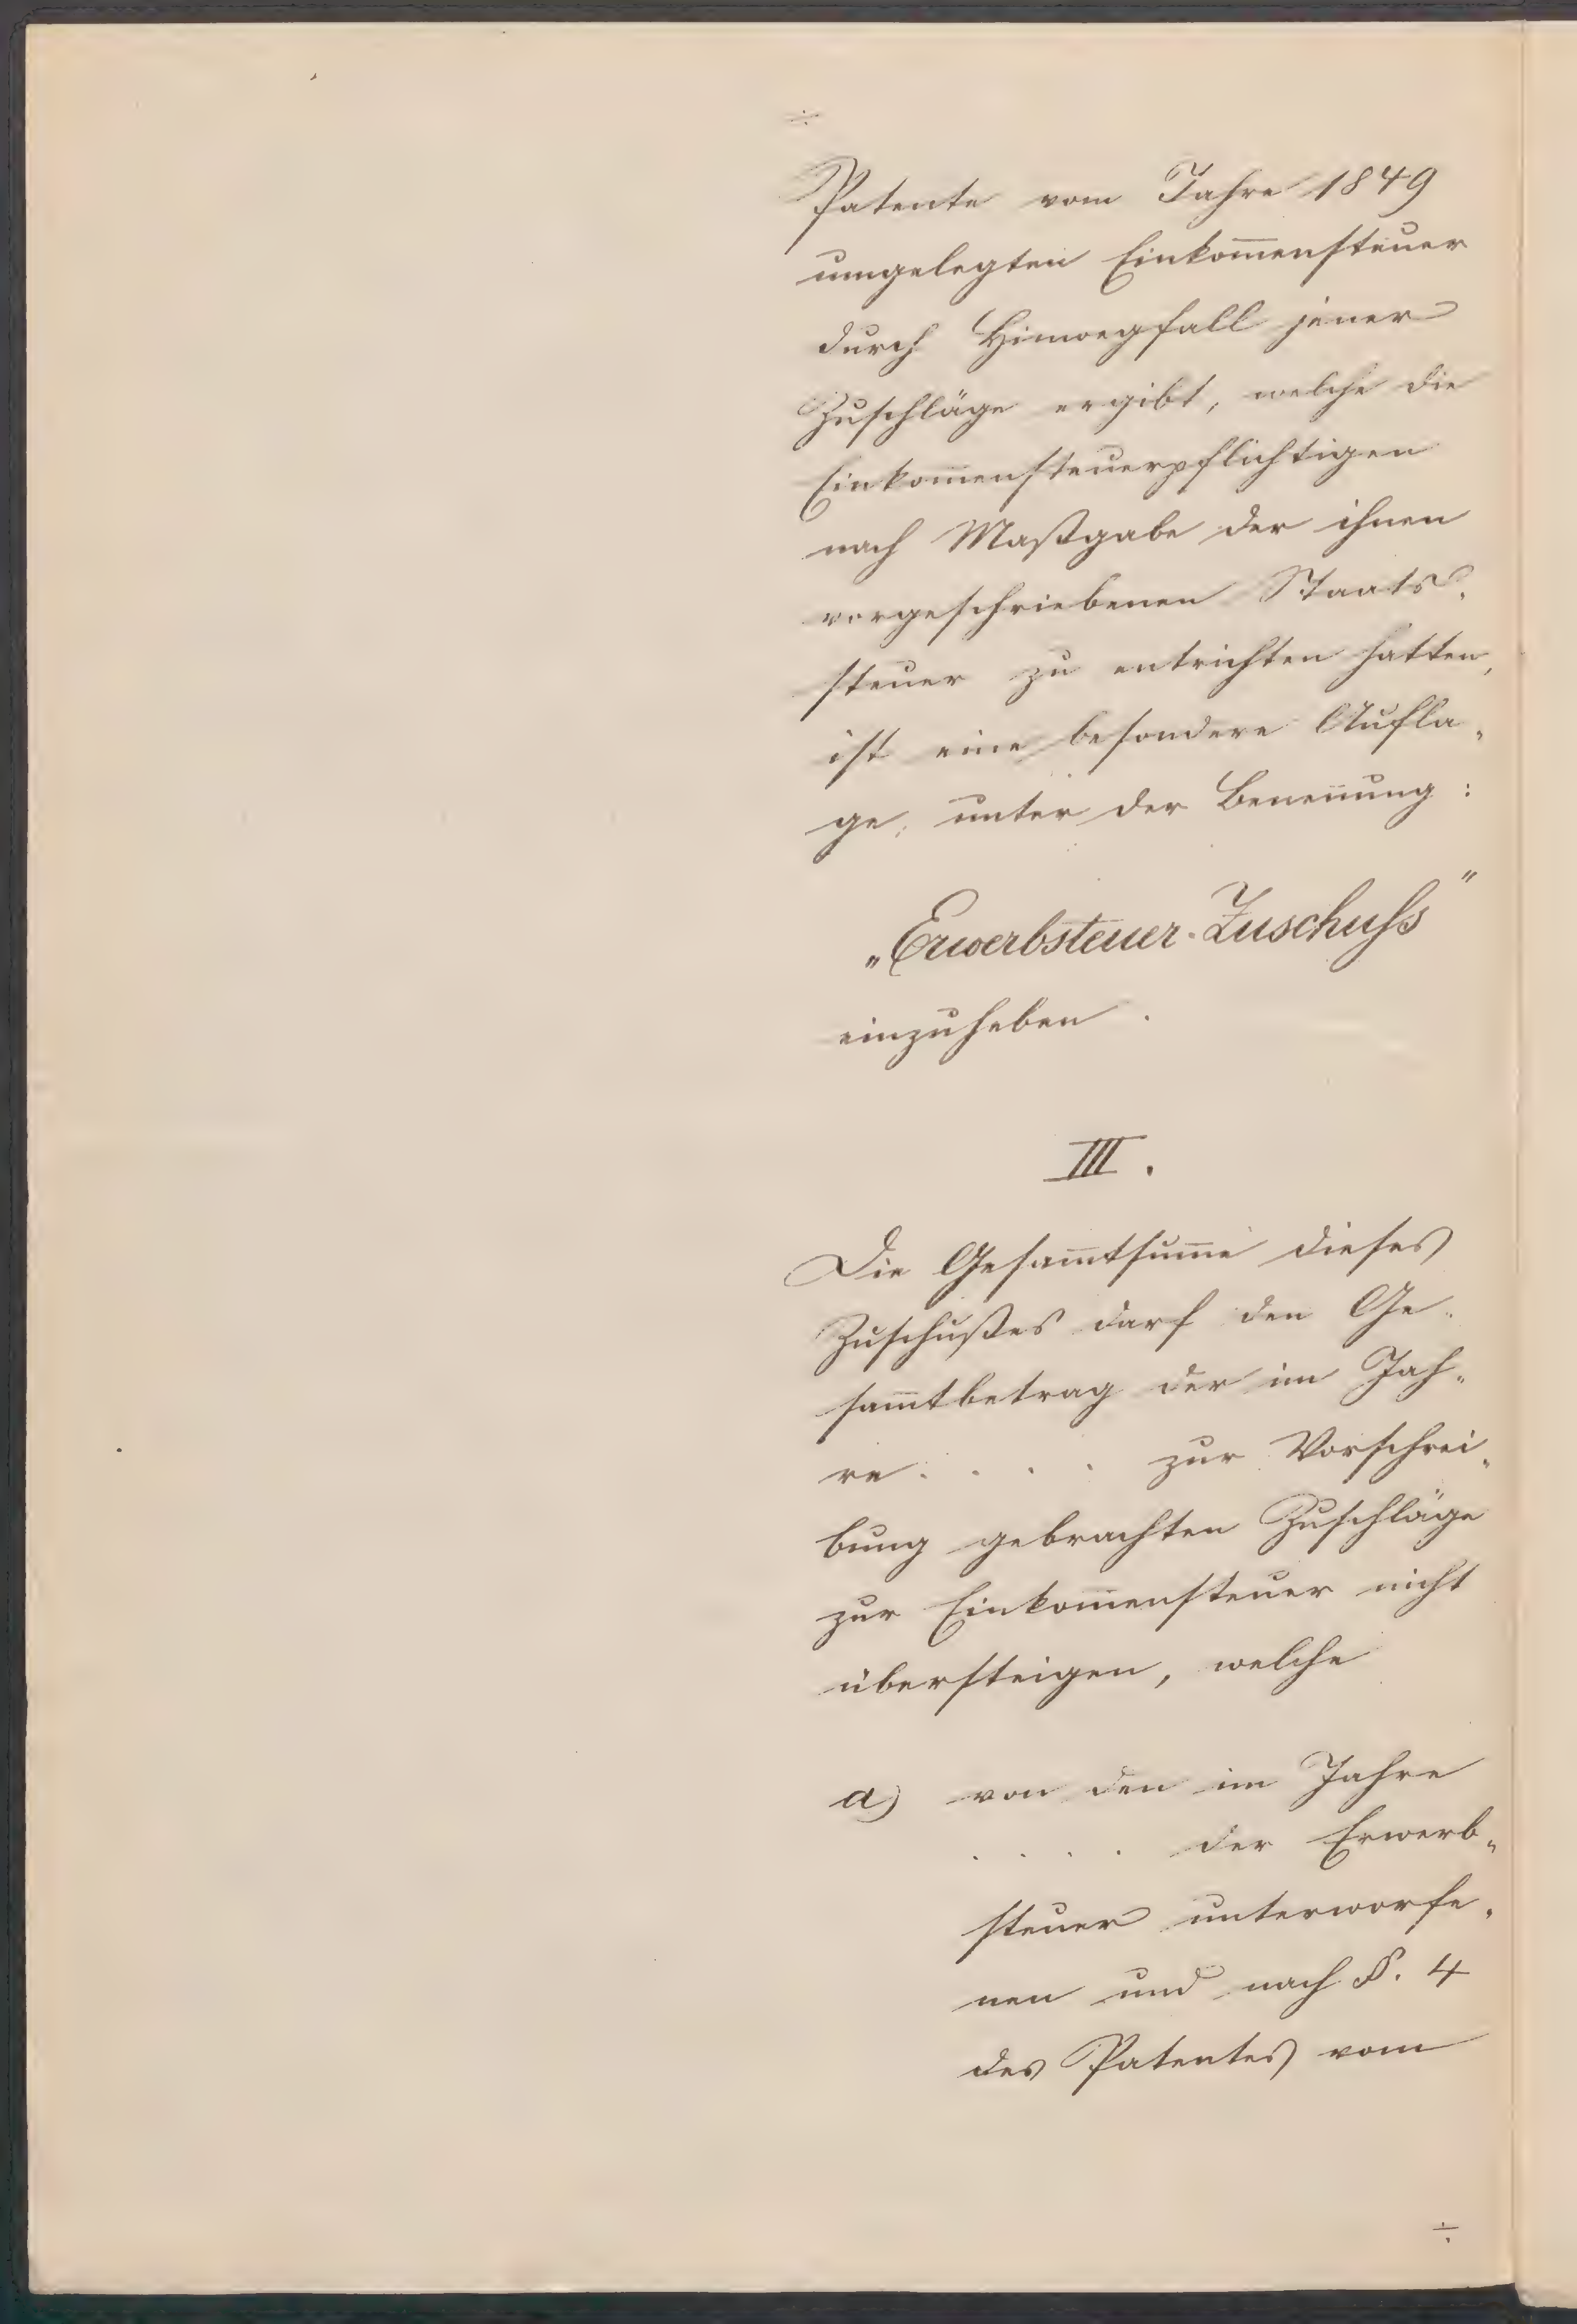 ÷
Patente vom Jahre 1849
umgelegten Einkom̅ensteuer
durch Hinwegfall jener
Zuschläge ergibt, welche die
Einkom̅ensteuerpflichtigen
nach Maßgabe der ihnen
vorgeschriebenen Staats„
steuer zu entrichten hatten,
ist eine besondere Aufla„
ge, unter der Benen̅ung:
„Erwerbsteuer-Zuschuss"
einzuheben.
III.
Die Gesam̅tsum̅e dieses
Zuschußes darf den Ge„
sam̅tbetrag der im Jah„
re . . . . zur Vorschrei„
bung gebrachten Zuschläge
zur Einkom̅ensteuer nicht
übersteigen, welche
a) von den im Jahre
. . . . der Erwerb„
steuer unterworfe„
nen und nach §. 4
des Patentes vom
÷